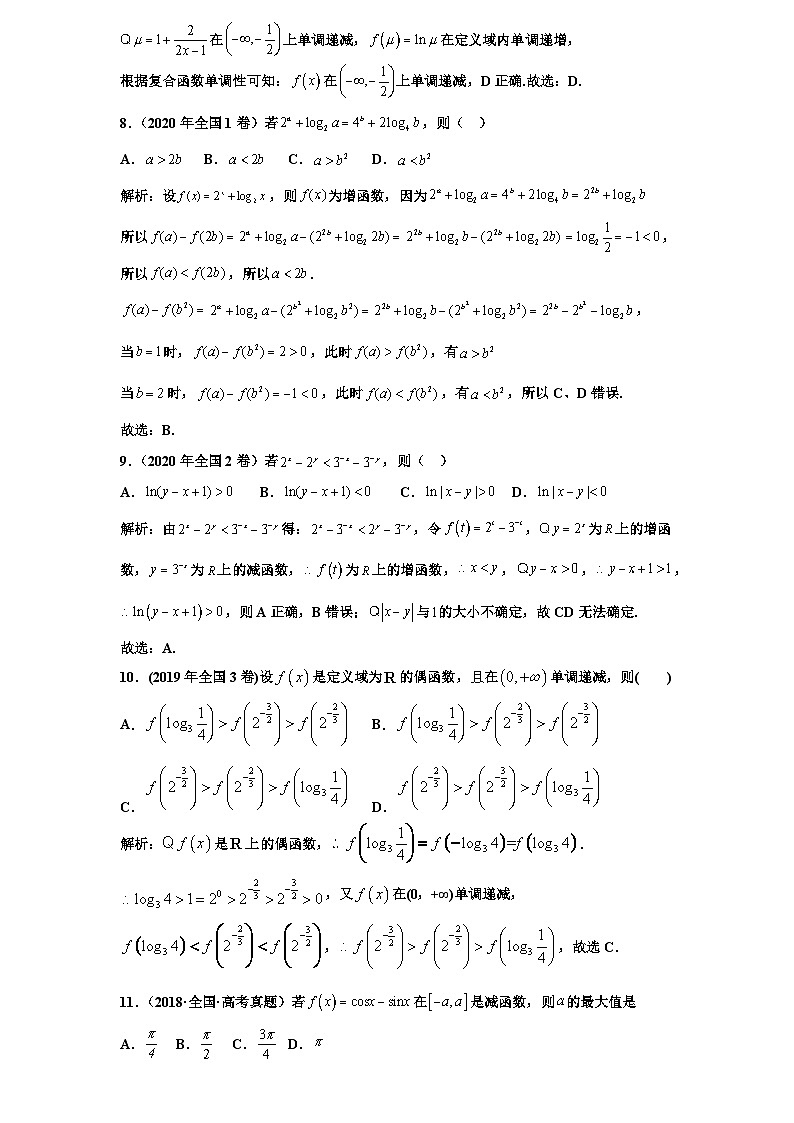 Q μ = 1 + 2/(2x−1) 在 (−∞, −1/2) 上单调递减, f(μ) = ln μ 在定义域内单调递增,
根据复合函数单调性可知: f(x) 在 (−∞, −1/2) 上单调递减, D 正确.故选: D.
8.(2020 年全国 1 卷) 若 2^a + log₂ a = 4^b + 2log₄ b, 则( )
A. a > 2b B. a < 2b C. a > b² D. a < b²
解析: 设 f(x) = 2^x + log₂ x, 则 f(x) 为增函数, 因为 2^a + log₂ a = 4^b + 2log₄ b = 2^{2b} + log₂ b
所以 f(a) − f(2b) = 2^a + log₂ a − (2^{2b} + log₂ 2b) = 2^{2b} + log₂ b − (2^{2b} + log₂ 2b) = log₂ 1/2 = −1 < 0,
所以 f(a) < f(2b), 所以 a < 2b.
f(a) − f(b²) = 2^a + log₂ a − (2^{b²} + log₂ b²) = 2^{2b} + log₂ b − (2^{b²} + log₂ b²) = 2^{2b} − 2^{b²} − log₂ b,
当 b = 1 时, f(a) − f(b²) = 2 > 0, 此时 f(a) > f(b²), 有 a > b²
当 b = 2 时, f(a) − f(b²) = −1 < 0, 此时 f(a) < f(b²), 有 a < b², 所以 C、D 错误.
故选: B.
9.(2020 年全国 2 卷) 若 2^x − 2^y < 3^{−x} − 3^{−y}, 则( )
A. ln(y − x + 1) > 0 B. ln(y − x + 1) < 0 C. ln | x − y |> 0 D. ln | x − y |< 0
解析: 由 2^x − 2^y < 3^{−x} − 3^{−y} 得: 2^x − 3^{−x} < 2^y − 3^{−y}, 令 f(t) = 2^t − 3^{−t}, Q y = 2^x 为 R 上的增函
数, y = 3^{−x} 为 R 上的减函数, ∴ f(t) 为 R 上的增函数, ∴ x < y, Q y − x > 0, ∴ y − x + 1 > 1,
∴ ln(y − x + 1) > 0, 则 A 正确, B 错误; Q |x − y| 与 1 的大小不确定, 故 CD 无法确定.
故选: A.
10. (2019 年全国 3 卷)设 f(x) 是定义域为 R 的偶函数, 且在 (0, +∞) 单调递减, 则( )
A. f(log₃ 1/4) > f(2^{−3/2}) > f(2^{−2/3}) B. f(log₃ 1/4) > f(2^{−2/3}) > f(2^{−3/2})
C. f(2^{−3/2}) > f(2^{−2/3}) > f(log₃ 1/4) D. f(2^{−2/3}) > f(2^{−3/2}) > f(log₃ 1/4)
解析: Q f(x) 是 R 上的偶函数, ∴ f(log₃ 1/4) = f(−log₃ 4) = f(log₃ 4).
∴ log₃ 4 > 1 = 2⁰ > 2^{−2/3} > 2^{−3/2} > 0, 又 f(x) 在(0, +∞)单调递减,
f(log₃ 4) < f(2^{−2/3}) < f(2^{−3/2}), ∴ f(2^{−3/2}) > f(2^{−2/3}) > f(log₃ 1/4), 故选 C.
11.(2018·全国·高考真题) 若 f(x) = cosx − sinx 在 [−a, a] 是减函数, 则 a 的最大值是
A. π/4 B. π/2 C. 3π/4 D. π